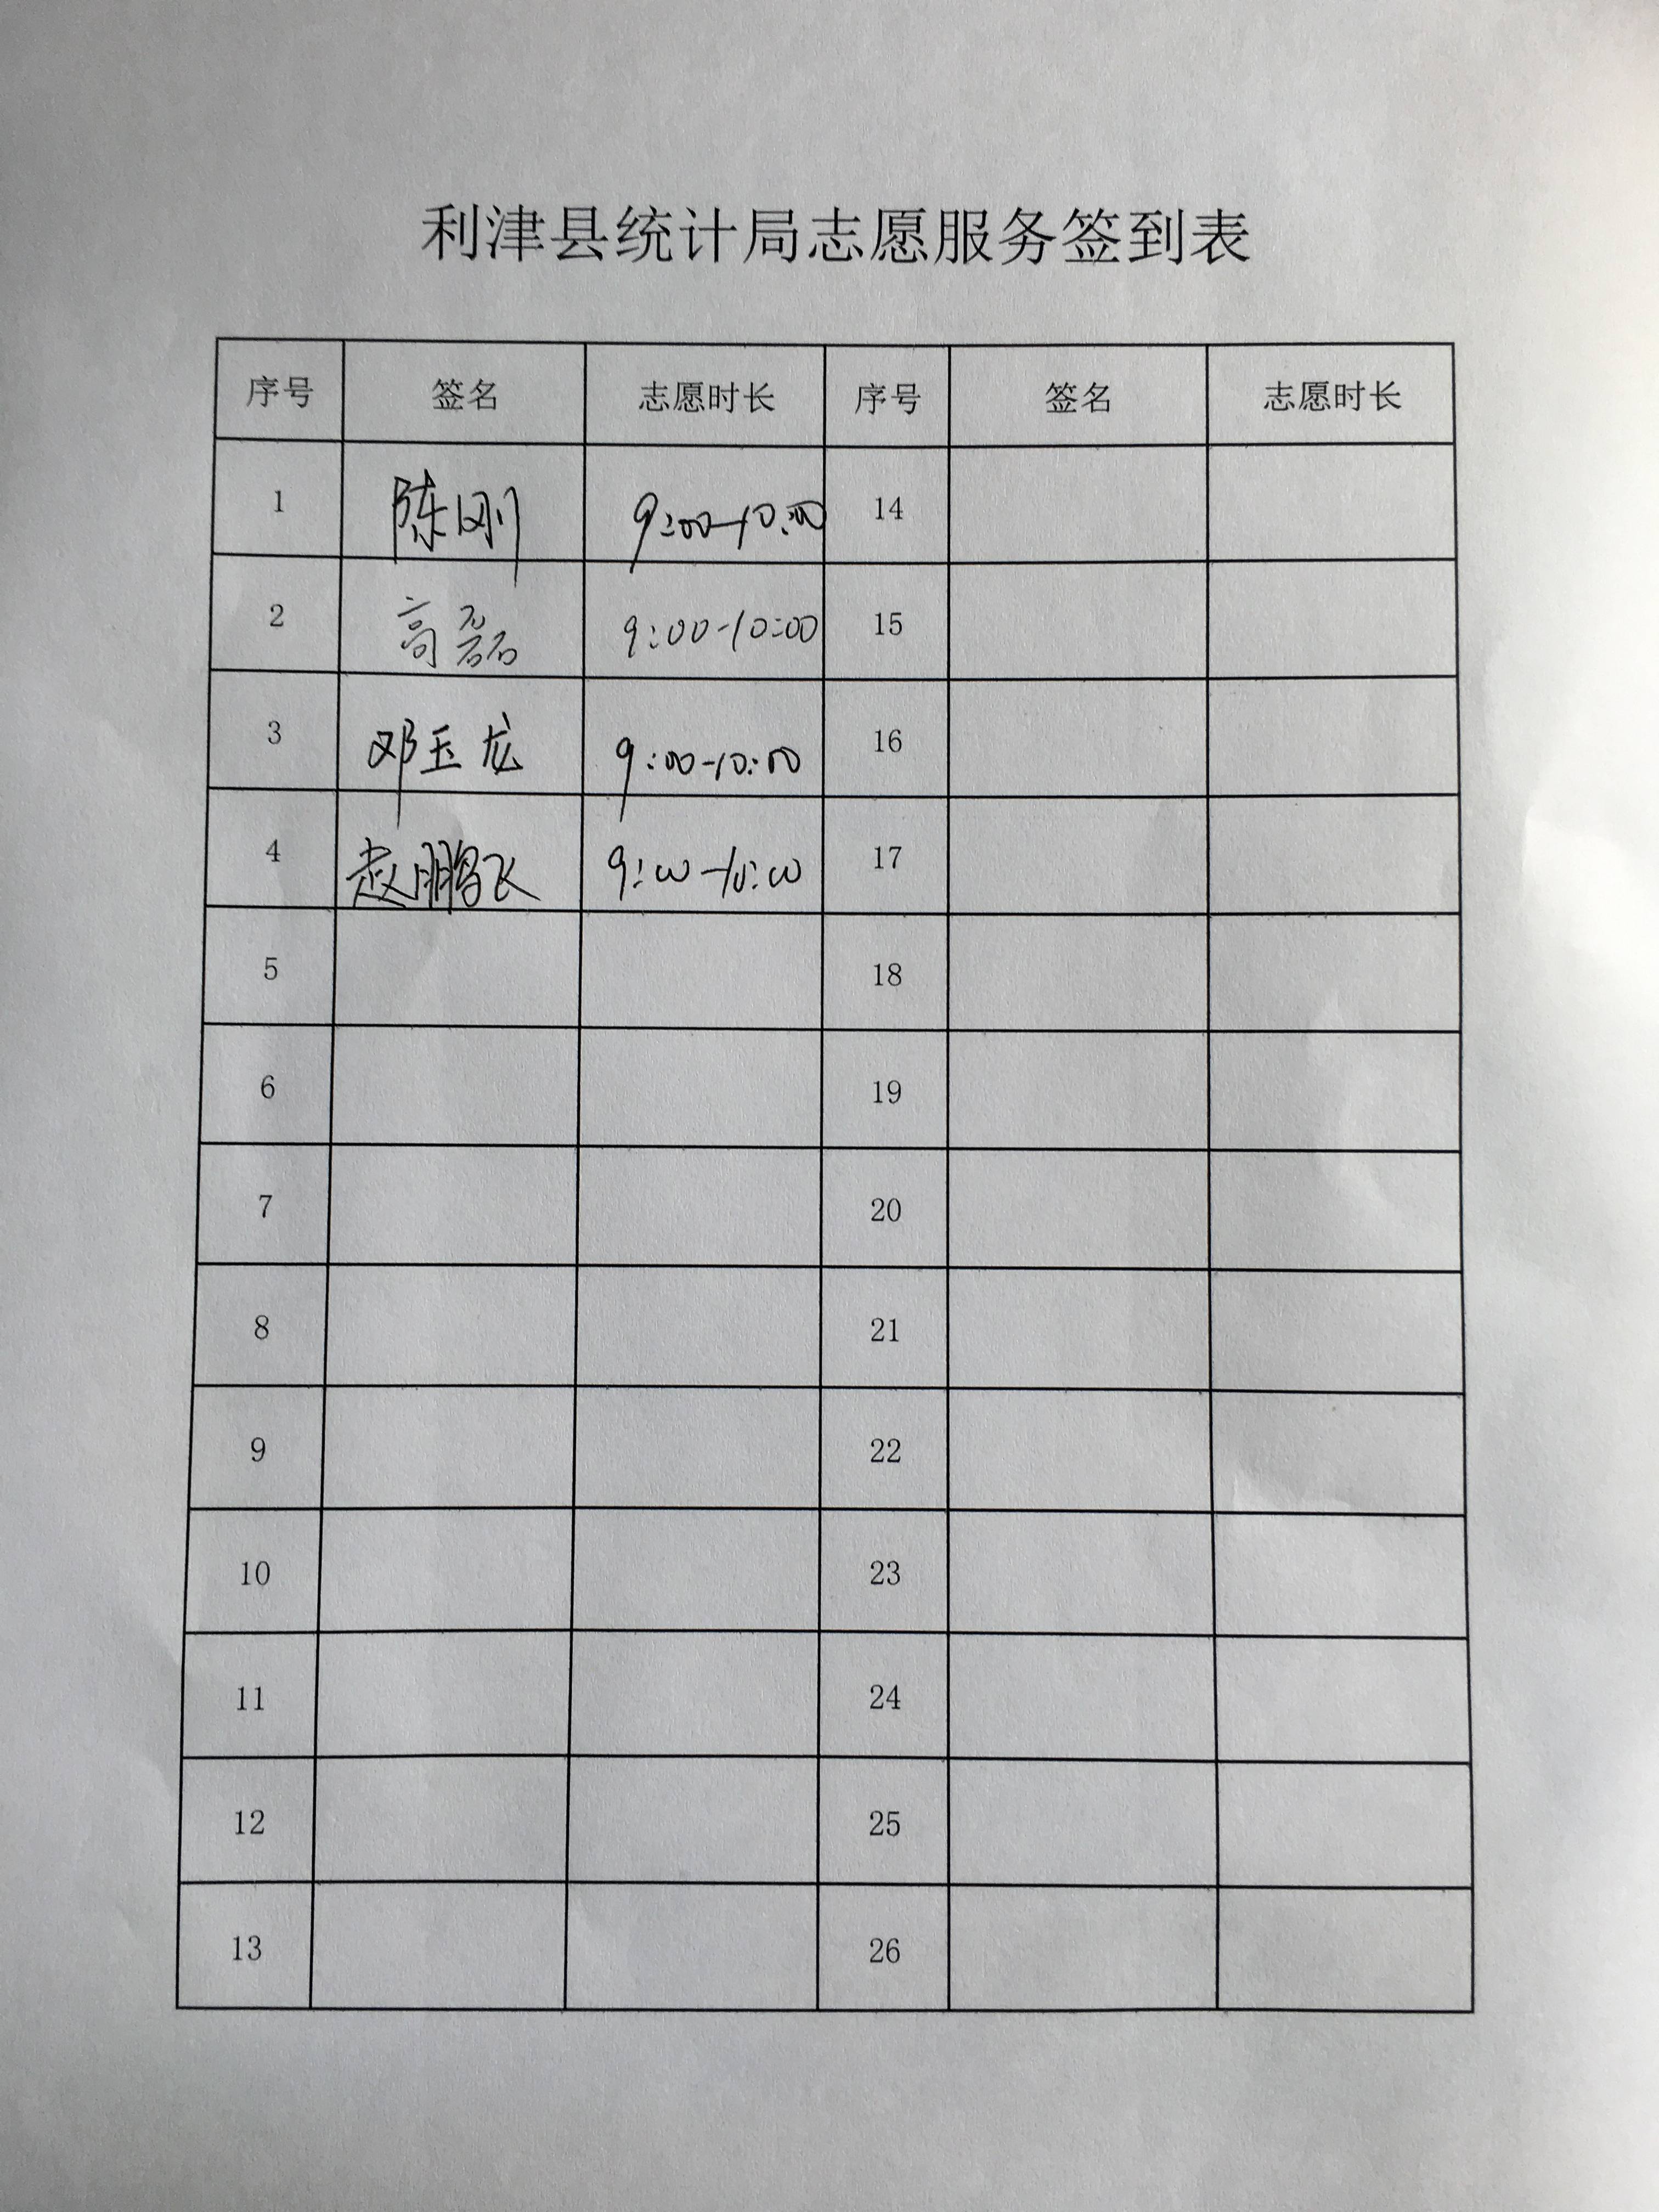 利津县统计局志愿服务签到表
序号 签名 志愿时长 序号 签名 志愿时长
1 陈刚 9:00-10:00 14
2 高磊 9:00-10:00 15
3 邓玉龙 9:00-10:00 16
4 赵鹏飞 9:00-10:00 17
5 18
6 19
7 20
8 21
9 22
10 23
11 24
12 25
13 26